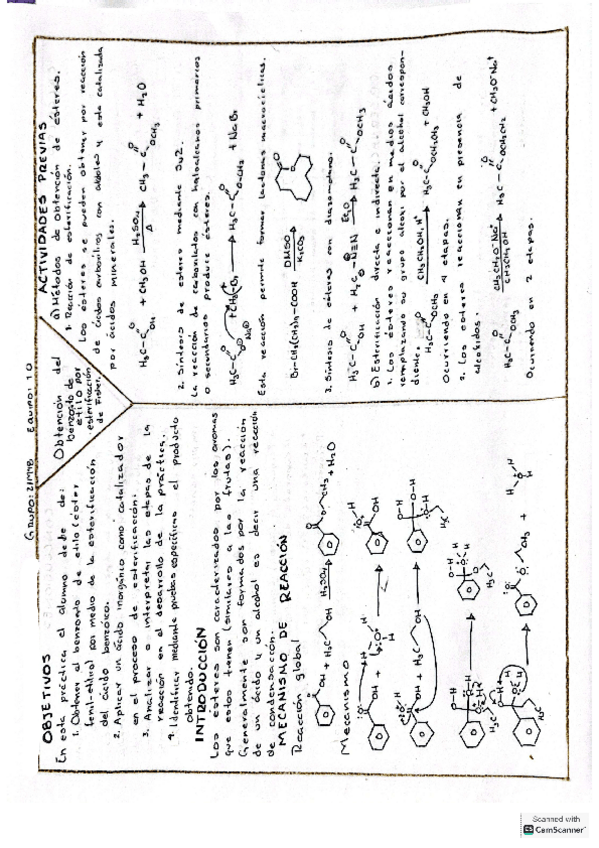 GRUPO: 2IM48 EQUIPO: 10
OBJETIVOS
En esta práctica el alumno debe de:
1. Obtener al benzoato de etilo (éster
fenil-etílico) por medio de la esterificación
del ácido benzóico.
2. Aplicar un ácido inorgánico como catalizador
en el proceso de esterificación.
3. Analizar e interpretar las etapas de la
reacción en el desarrollo de la práctica.
4. Identificar mediante pruebas específicas el producto
obtenido.
INTRODUCCIÓN
Los ésteres son caracterizados por los aromas
que estos tienen (similares a las frutas).
Generalmente son formados por la reacción
de un ácido y un alcohol es decir una reacción
de condensación.
MECANISMO DE REACCIÓN
Reacción global
H2SO4
+ H2O
Mecanismo
Obtención del
benzoato de
etilo por
esterificación
de Fisher.
ACTIVIDADES PREVIAS
a) Métodos de obtención de ésteres.
1. Reacción de esterificación
Los ésteres se pueden obtener por reacción
de ácidos carboxílicos con alcoholes y esta catalizada
por ácidos minerales.
H3C-C OH + CH3OH H2SO4 Δ CH3-C O OCH3 + H2O
2. Síntesis de esteres mediante SN2.
La reacción de carboxilatos con haloalcanos primarios
o secundarios produce ésteres.
+ NaBr
Esta reacción permite formar lactonas macrocíclicas.
Br-CH2(CH2)9-COOH DMSO K2CO3
3. Síntesis de ésteres con diazometano.
Et2O
b) Esterificación directa e indirecta.
1. Los ésteres reaccionan en medios ácidos
remplazando su grupo alcoxi por el alcohol correspon-
diente.
CH3CH2OH, H+
+ CH3OH
Ocurriendo en 4 etapas.
2. Los esteres reaccionan en presencia de
alcóxidos.
CH3CH2O-Na+
CH3CH2OH
+ CH3O-Na+
Ocurriendo en 2 etapas.
Scanned with
CamScanner